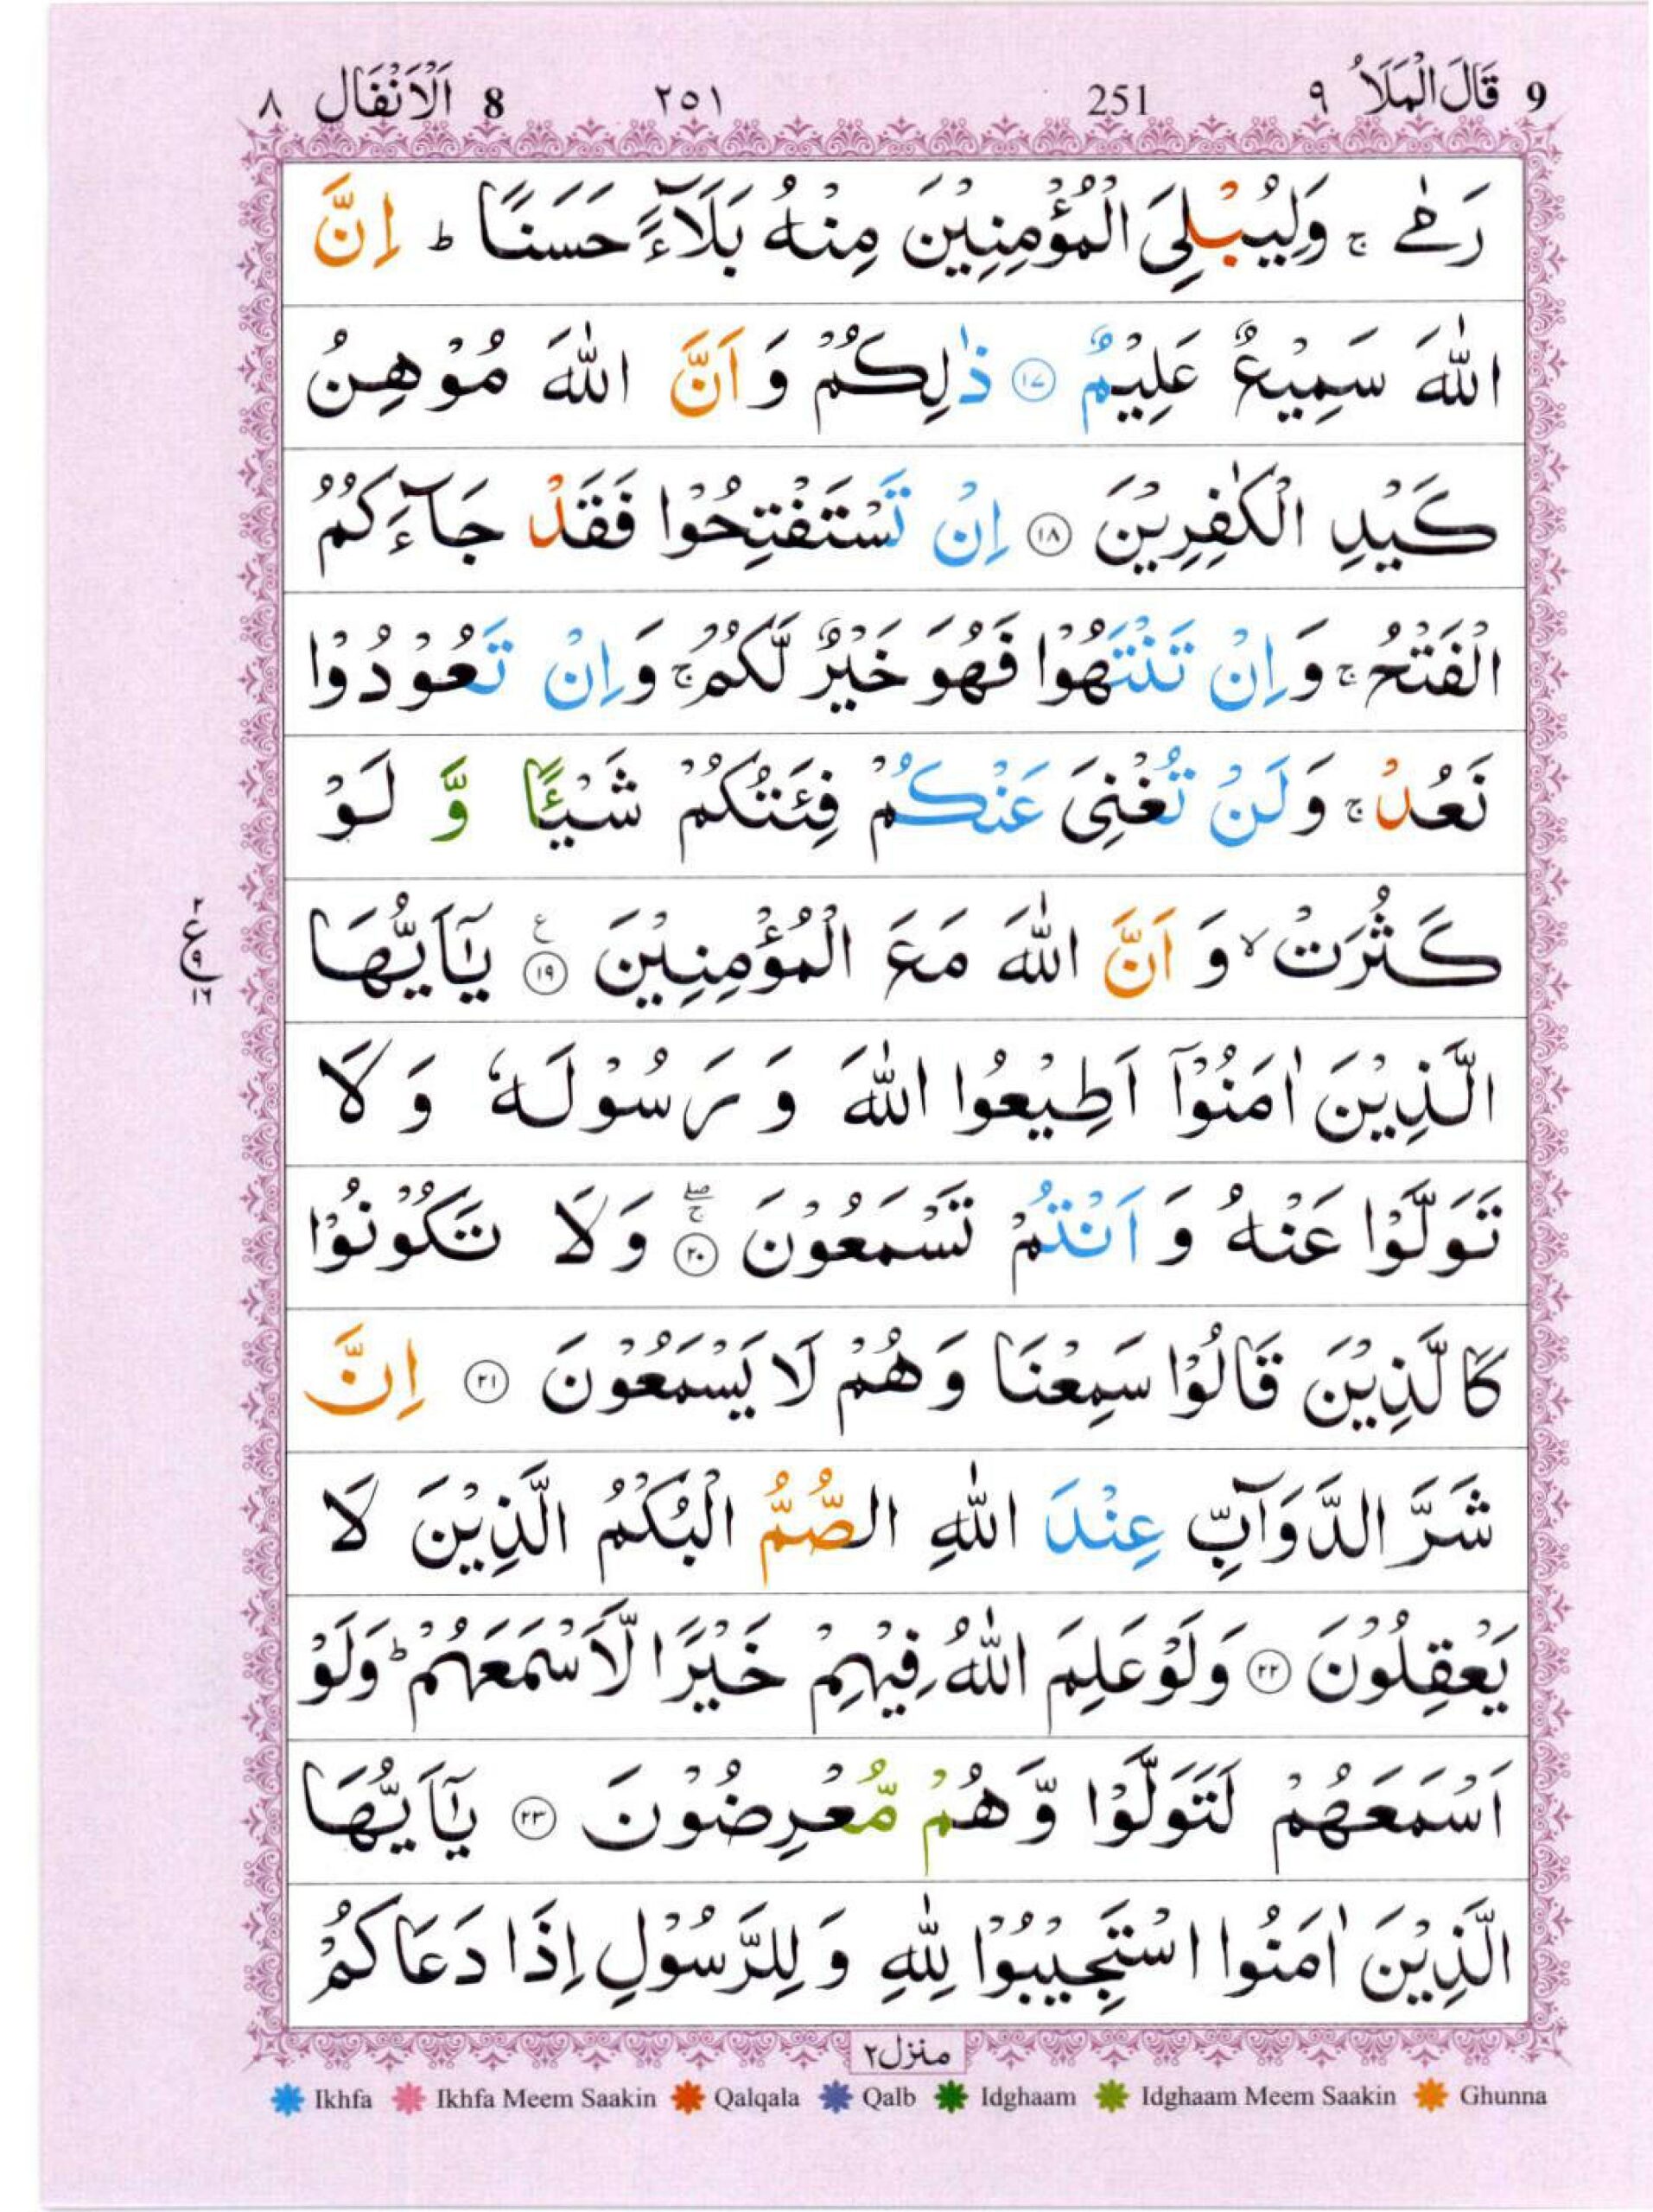 9 قَالَ الْمَلَاُ ٩ 251 ٢٥١ 8 اَلْاَنْفَال ٨
رَمٰى ۚ وَلِيُبْلِىَ الْمُؤْمِنِيْنَ مِنْهُ بَلَآءً حَسَنًا ؕ اِنَّ
اللّٰهَ سَمِيْعٌ عَلِيْمٌ ۝۱۷ ذٰلِكُمْ وَ اَنَّ اللّٰهَ مُوْهِنُ
كَيْدِ الْكٰفِرِيْنَ ۝۱۸ اِنْ تَسْتَفْتِحُوْا فَقَدْ جَآءَكُمُ
الْفَتْحُ ۚ وَ اِنْ تَنْتَهُوْا فَهُوَ خَيْرٌ لَّكُمْ ۚ وَ اِنْ تَعُوْدُوْا
نَعُدْ ۚ وَ لَنْ تُغْنِىَ عَنْكُمْ فِئَتُكُمْ شَيْـًٔا وَّ لَوْ
كَثُرَتْ ۙ وَ اَنَّ اللّٰهَ مَعَ الْمُؤْمِنِيْنَ ۝۱۹ ع يٰۤاَيُّهَا
٢ ع ٩ ١٦
الَّذِيْنَ اٰمَنُوْۤا اَطِيْعُوا اللّٰهَ وَ رَسُوْلَهٗ وَ لَا
تَوَلَّوْا عَنْهُ وَ اَنْتُمْ تَسْمَعُوْنَ ۝۲۰ ۖۚ وَ لَا تَكُوْنُوْا
كَالَّذِيْنَ قَالُوْا سَمِعْنَا وَ هُمْ لَا يَسْمَعُوْنَ ۝۲۱ اِنَّ
شَرَّ الدَّوَآبِّ عِنْدَ اللّٰهِ الصُّمُّ الْبُكْمُ الَّذِيْنَ لَا
يَعْقِلُوْنَ ۝۲۲ وَلَوْ عَلِمَ اللّٰهُ فِيْهِمْ خَيْرًا لَّاَسْمَعَهُمْ ؕ وَلَوْ
اَسْمَعَهُمْ لَتَوَلَّوْا وَّ هُمْ مُّعْرِضُوْنَ ۝۲۳ يٰۤاَيُّهَا
الَّذِيْنَ اٰمَنُوا اسْتَجِيْبُوْا لِلّٰهِ وَ لِلرَّسُوْلِ اِذَا دَعَاكُمْ
منزل٢
Ikhfa Ikhfa Meem Saakin Qalqala Qalb Idghaam Idghaam Meem Saakin Ghunna